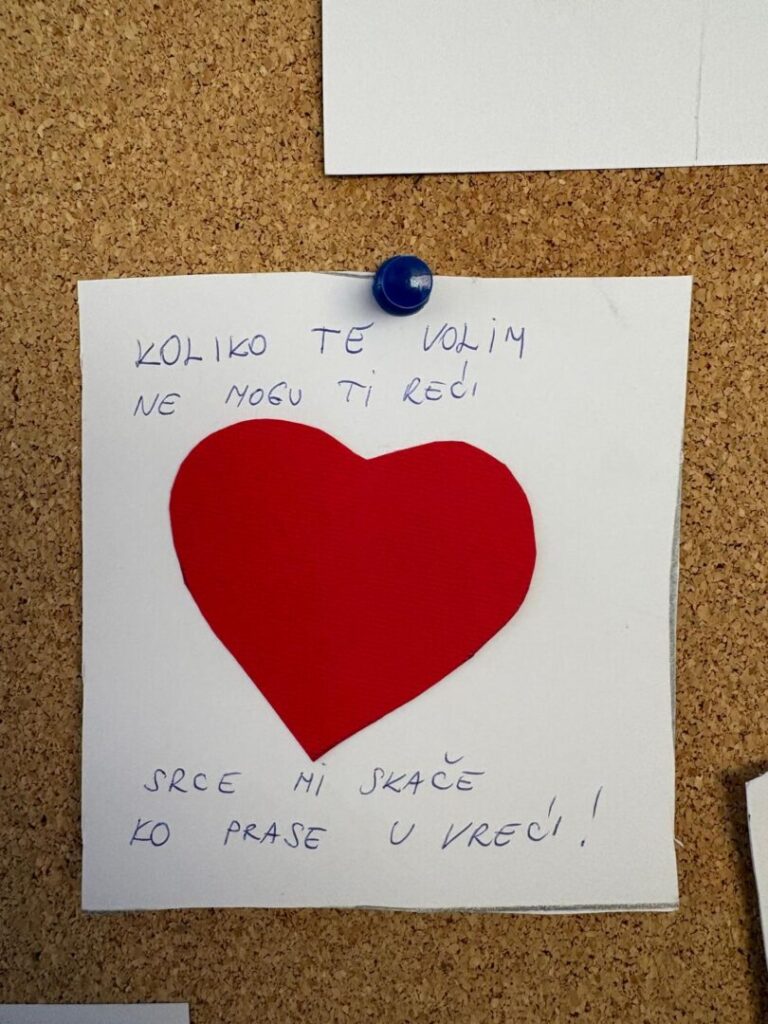 KOLIKO TE VOLIM
NE MOGU TI REĆI
SRCE MI SKAČE
KO PRASE U VREĆI!